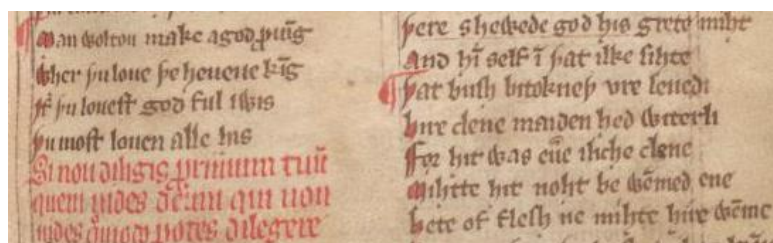 Man woltou make a god p̱ruīg
Wher þu loue þe heuene kīg
Ȝif þu louest god ful iwis
þu most louen alle his
Si non diligis proximum tuū
quem uides deum qui non
uides quomodo potes diligere
þere shewede god his grete miht
And hī self ī þat ilke sihte
¶ þat bush bitokneþ vre leuedi
hire clene maiden hed witerli
For hit was eue iliche clene
Mihtte hit noht be wēmed ene
hete of flesh ne mihte hire wēme